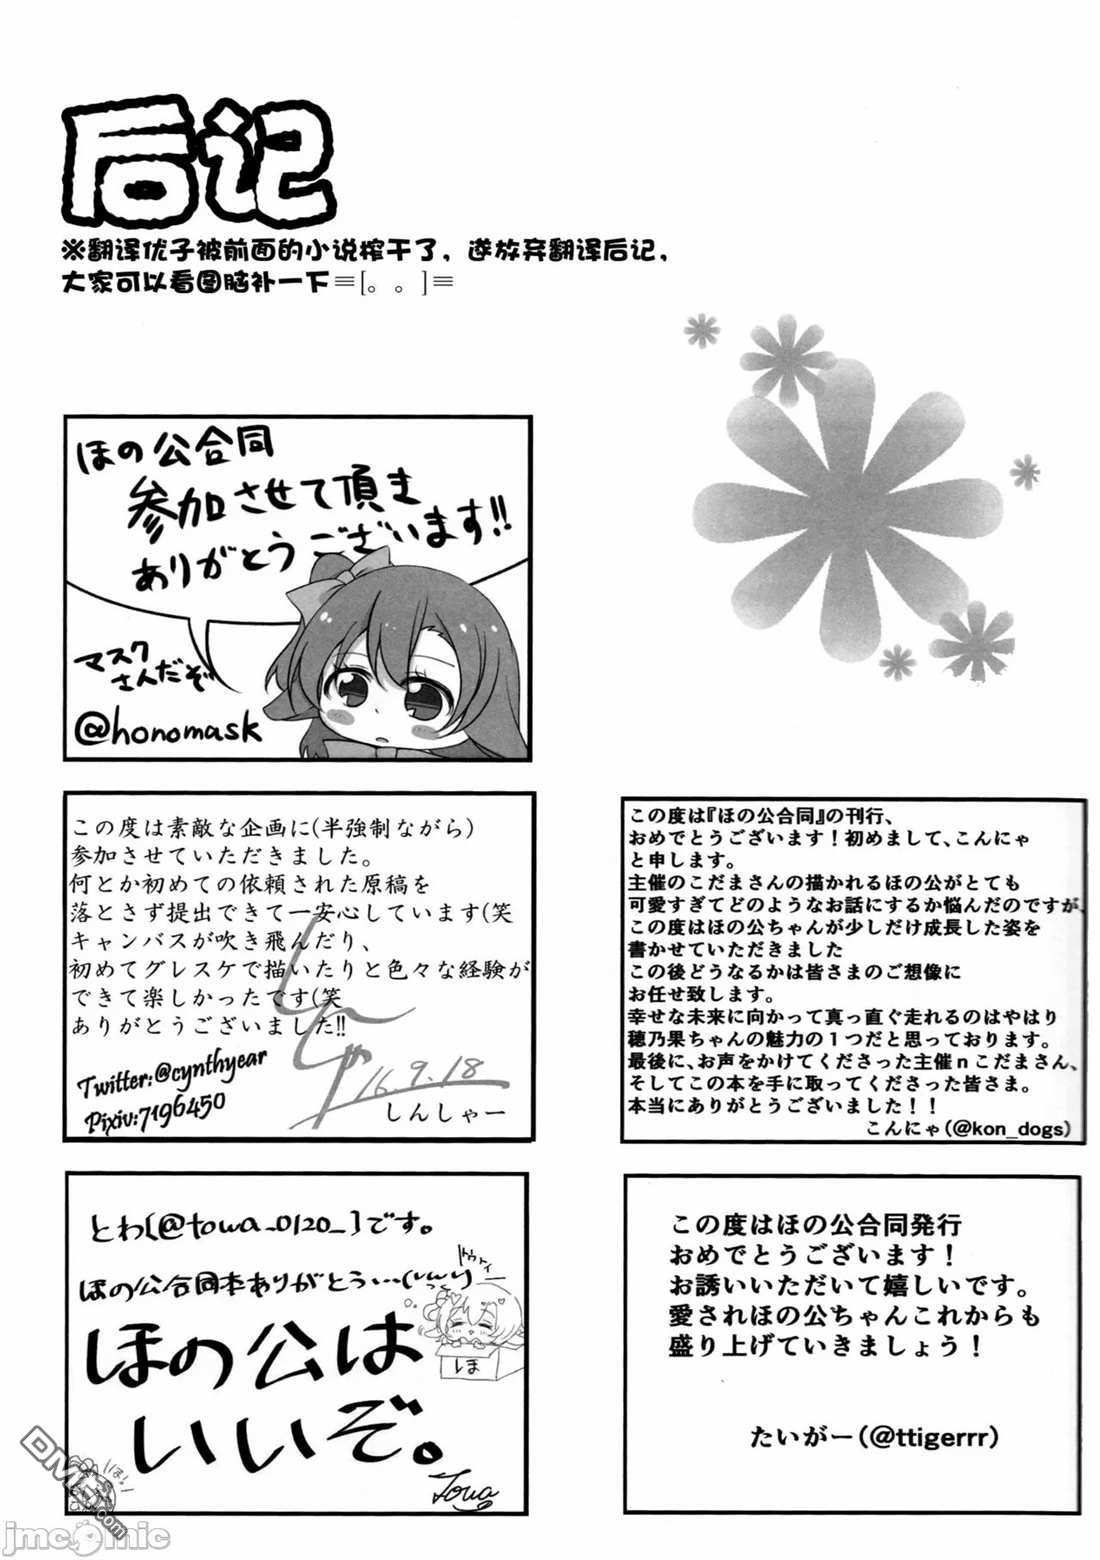 后记
※翻译优子被前面的小说榨干了，遂放弃翻译后记，
大家可以看图脑补一下≡[。。]≡
ほの公合同
参加させて頂き
ありがとうございます!!
マスク
さんだぞ
@honomask
この度は素敵な企画に(半強制ながら)
参加させていただきました。
何とか初めての依頼された原稿を
落とさず提出できて一安心しています(笑
キャンバスが吹き飛んだり、
初めてグレスケで描いたりと色々な経験が
できて楽しかったです(笑
ありがとうございました!!
Twitter:@cynthyear
Pixiv:7196450
16.9.18
しんしゃー
とわ(@towa_0120_)です。
ほの公合同本ありがとう…
ほの公は
いいぞ。
ほ
Towa
この度は『ほの公合同』の刊行、
おめでとうございます！初めまして、こんにゃ
と申します。
主催のこだまさんの描かれるほの公がとても
可愛すぎてどのようなお話にするか悩んだのですが、
この度はほの公ちゃんが少しだけ成長した姿を
書かせていただきました
この後どうなるかは皆さまのご想像に
お任せ致します。
幸せな未来に向かって真っ直ぐ走れるのはやはり
穂乃果ちゃんの魅力の１つだと思っております。
最後に、お声をかけてくださった主催ｎこだまさん、
そしてこの本を手に取ってくださった皆さま。
本当にありがとうございました！！
こんにゃ(@kon_dogs)
この度はほの公合同発行
おめでとうございます！
お誘いいただいて嬉しいです。
愛されほの公ちゃんこれからも
盛り上げていきましょう！
たいがー(@ttigerrr)
jmcomic